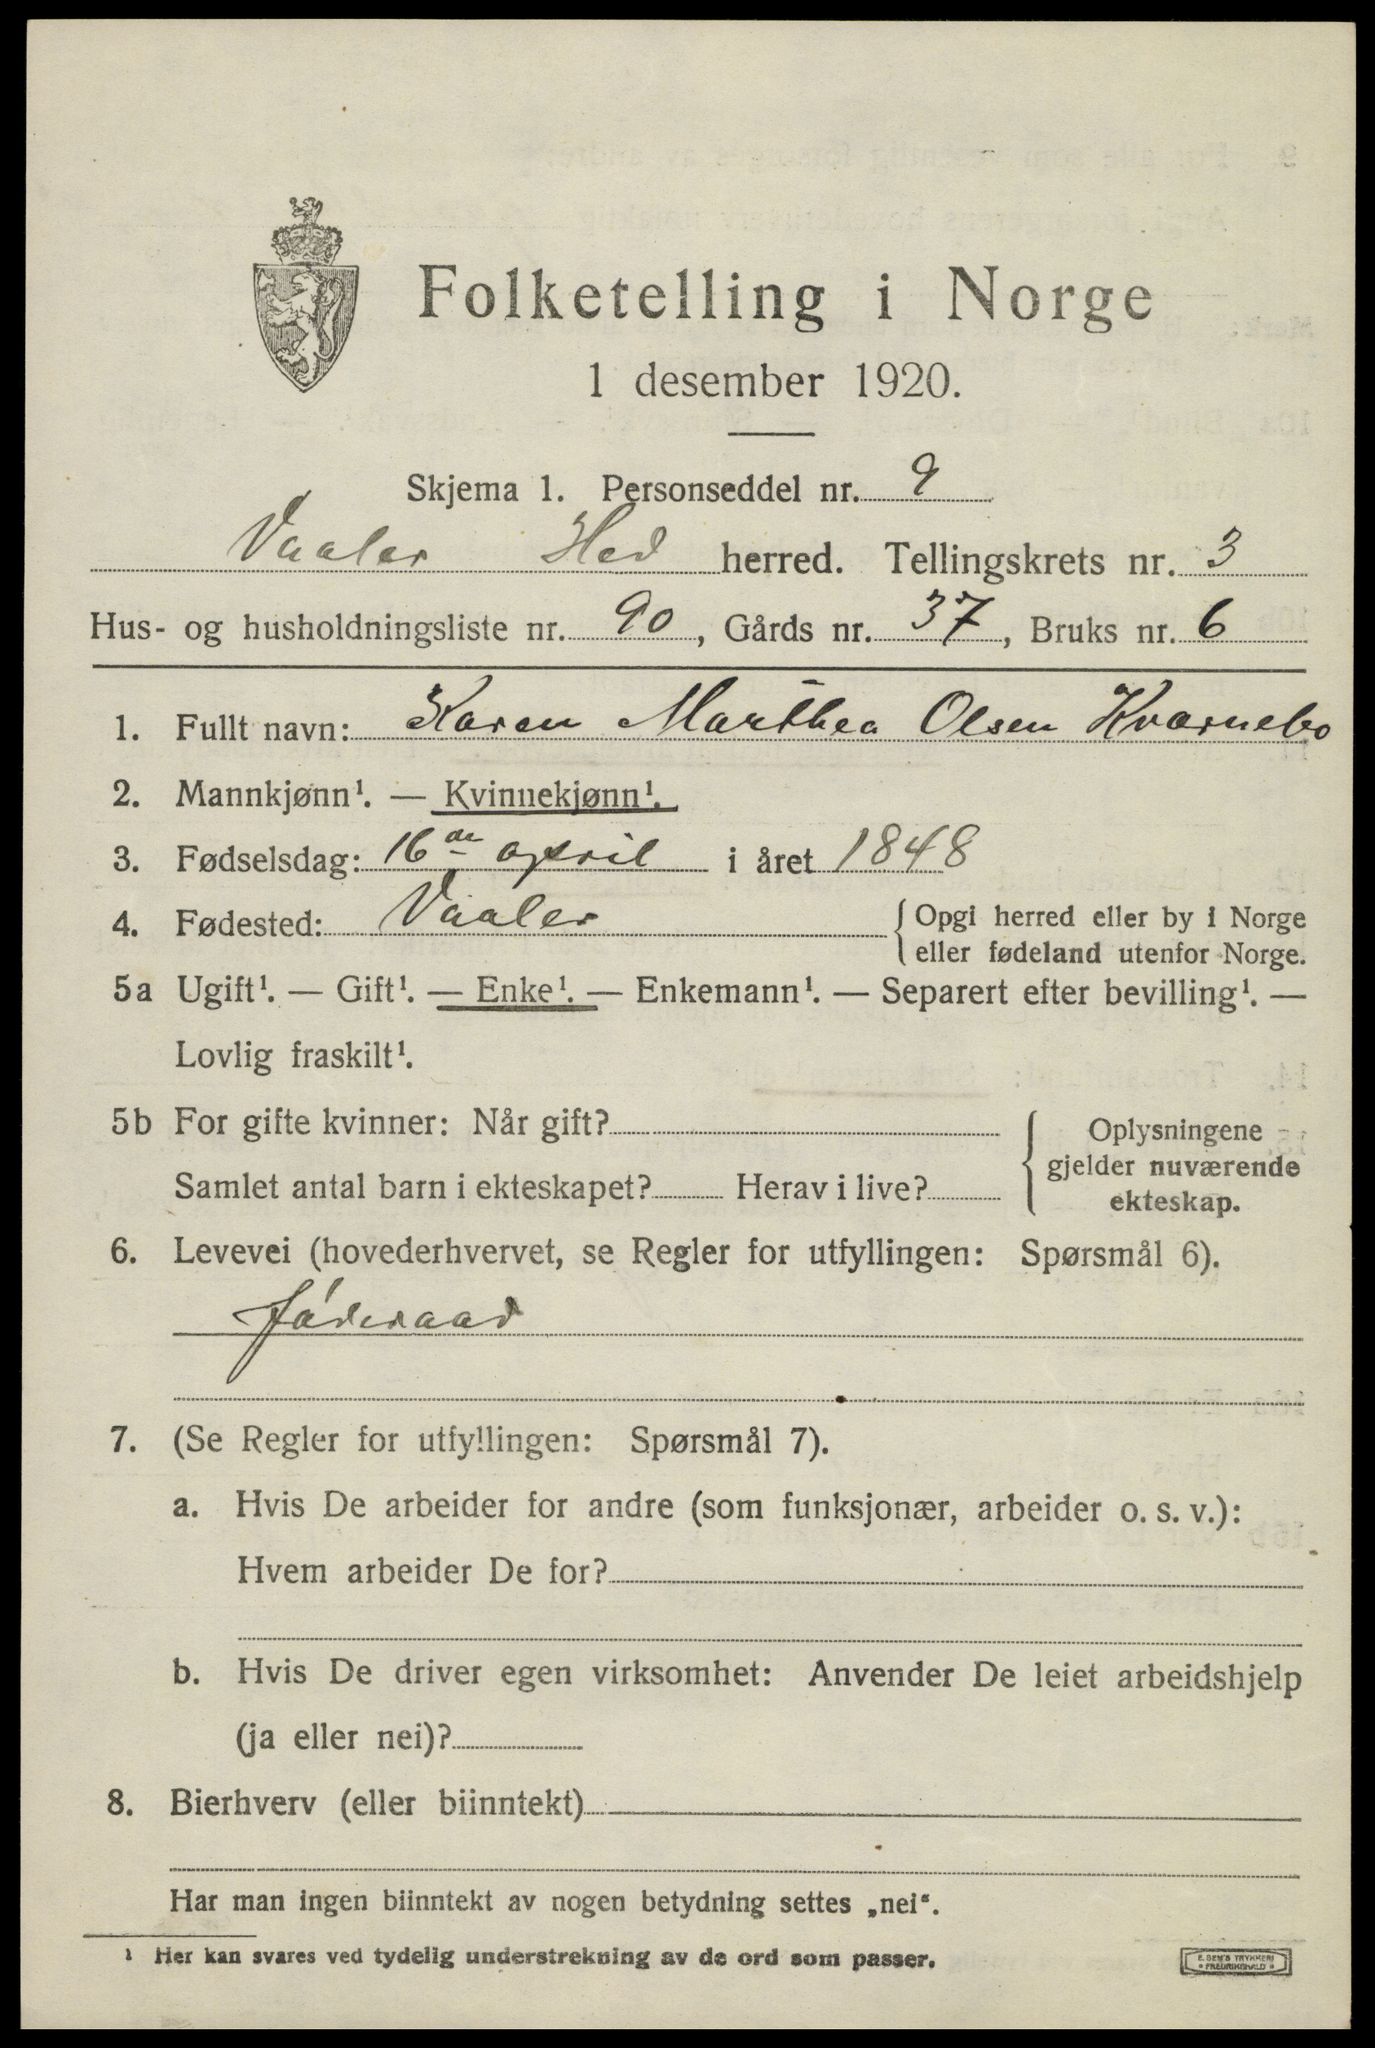 Folketelling i Norge
1 desember 1920.
Skjema 1. Personseddel nr. 9
Vaaler Hed herred. Tellingskrets nr. 3
Hus- og husholdningsliste nr. 90, Gårds nr. 37, Bruks nr. 6
1. Fullt navn: Karen Marthea Olsen Kværnebo
2. Mannkjønn¹. — Kvinnekjønn¹.
3. Fødselsdag: 16de april i året 1848
4. Fødested: Vaaler { Opgi herred eller by i Norge
eller fødeland utenfor Norge.
5a Ugift¹. — Gift¹. — Enke¹. — Enkemann¹. — Separert efter bevilling¹. —
Lovlig fraskilt¹.
5b For gifte kvinner: Når gift?
Samlet antal barn i ekteskapet? Herav i live?
Oplysningene
gjelder nuværende
ekteskap.
6. Levevei (hovederhvervet, se Regler for utfyllingen: Spørsmål 6).
Føderaad
7. (Se Regler for utfyllingen: Spørsmål 7).
a. Hvis De arbeider for andre (som funksjonær, arbeider o. s. v.):
Hvem arbeider De for?
b. Hvis De driver egen virksomhet: Anvender De leiet arbeidshjelp
(ja eller nei)?
8. Bierhverv (eller biinntekt)
Har man ingen biinntekt av nogen betydning settes „nei“.
¹ Her kan svares ved tydelig understrekning av de ord som passer.
E. SEM'S TRYKKERI
FREDRIKSHALD